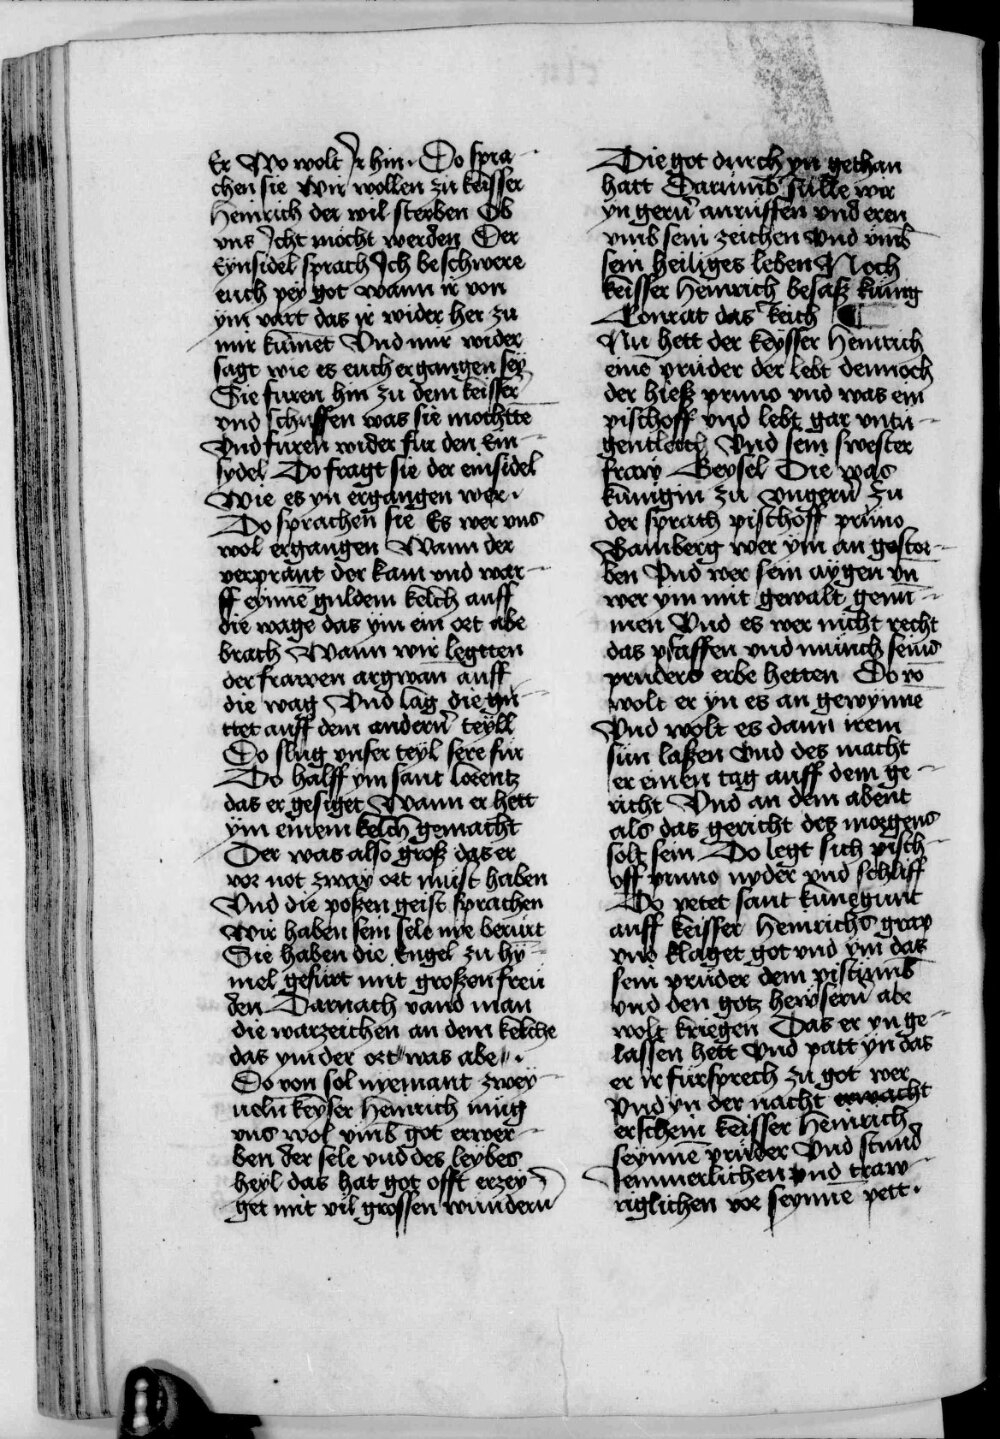 Er Wo wolt Ir hin · Do spra-
chen sie Wir wollen zu keisser
Heinrich der wil sterben Ob
vns Icht möcht werden Der
Eynsidel sprach Ich beschwere
euch pey got wann ir von
ym vart das ir wider her zu
mir kumet Vnd mir wider
sagt wie es euch ergangen sey
Sie furen hin zu dem keisser
vnd schuffen was sie mochtte
Vnd furen wider fur den Ein-
sydel Do fragt sie der einsidel
Wie es yn ergangen wer ·
Do sprachen sie Es wer vns
wol ergangen Wann der
verprant der kam vnd war-
ff eynnē guldem kelch auff
die wage das ym ein ort abe
brach Wann wir legtten
der frawen argwan auff
die wag Vnd lag die gu-
ttet auff dem andern teyll
Do slug vnser teyl sere fur
Do halff ym sant lorentz
das er gesiget Wann er hett
ym einem kelch gemacht
Der was also groß das er
vor not zway ort must haben
Vnd die poßen geist sprachen
Wir haben sein sele nye berürt
Sie haben die Engel zu hy-
mel gefürt mit großen freu
den Darnach vand man
die warzeichen an dem kelche
das ym der ort was abe ·
Do von sol nyemant zwey-
ueln keyser Heinrich mug
vns wol vmb got erwer-
ben der sele vnd des leybes
heyl das hat got offt erzey-
get mit vil grossen wundern
Die got durch yn gethan
hatt Darumb sulle wir
yn gern anruffen vnd eren
vmb sein zeichen Vnd vmb
sein heiliges leben Noch
keisser Heinrich besaß kunig
Conrat das Reich
Nu hett der keysser Heinrich
eine pruder der lebt dennoch
der hieß pruno vnd was ein
pischoff vnd lebt gar vntu-
gentleich Vnd sein swester
fraw Geysel Die was
kunigin zu vngern Zu
der sprach pischoff pruno
Bamberg wer ym an gestor-
ben Vnd wer sein aygen vn
wer ym mit gewalt genu-
men Vnd es wer nicht recht
das pfaffen vnd münch seins
pruders erbe hetten Do vō
wolt er yn es an gewynne
Vnd wolt es dann irem
sun laßen Vnd des macht
er einen tag auff dem ge-
richt Vnd an dem abent
als das gericht des morgens
solt sein Do legt sich pisch-
off pruno nyder vnd schlaff
Do petet sant kunegunt
auff keisser Heinrichs grap
vnd klaget got vnd ym das
sein pruder dem pistumb
vnd den gotz hewsern abe
wolt kriegen Das er yn ge-
lassen hett Vnd patt yn das
er ir fursprech zu got wer
Vnd yn der nacht erwacht
erschein keisser Heinrich
seynnē pruder Vnd stund
Iemmerlichen vnd traw-
riglichen vor seynnē pett ·